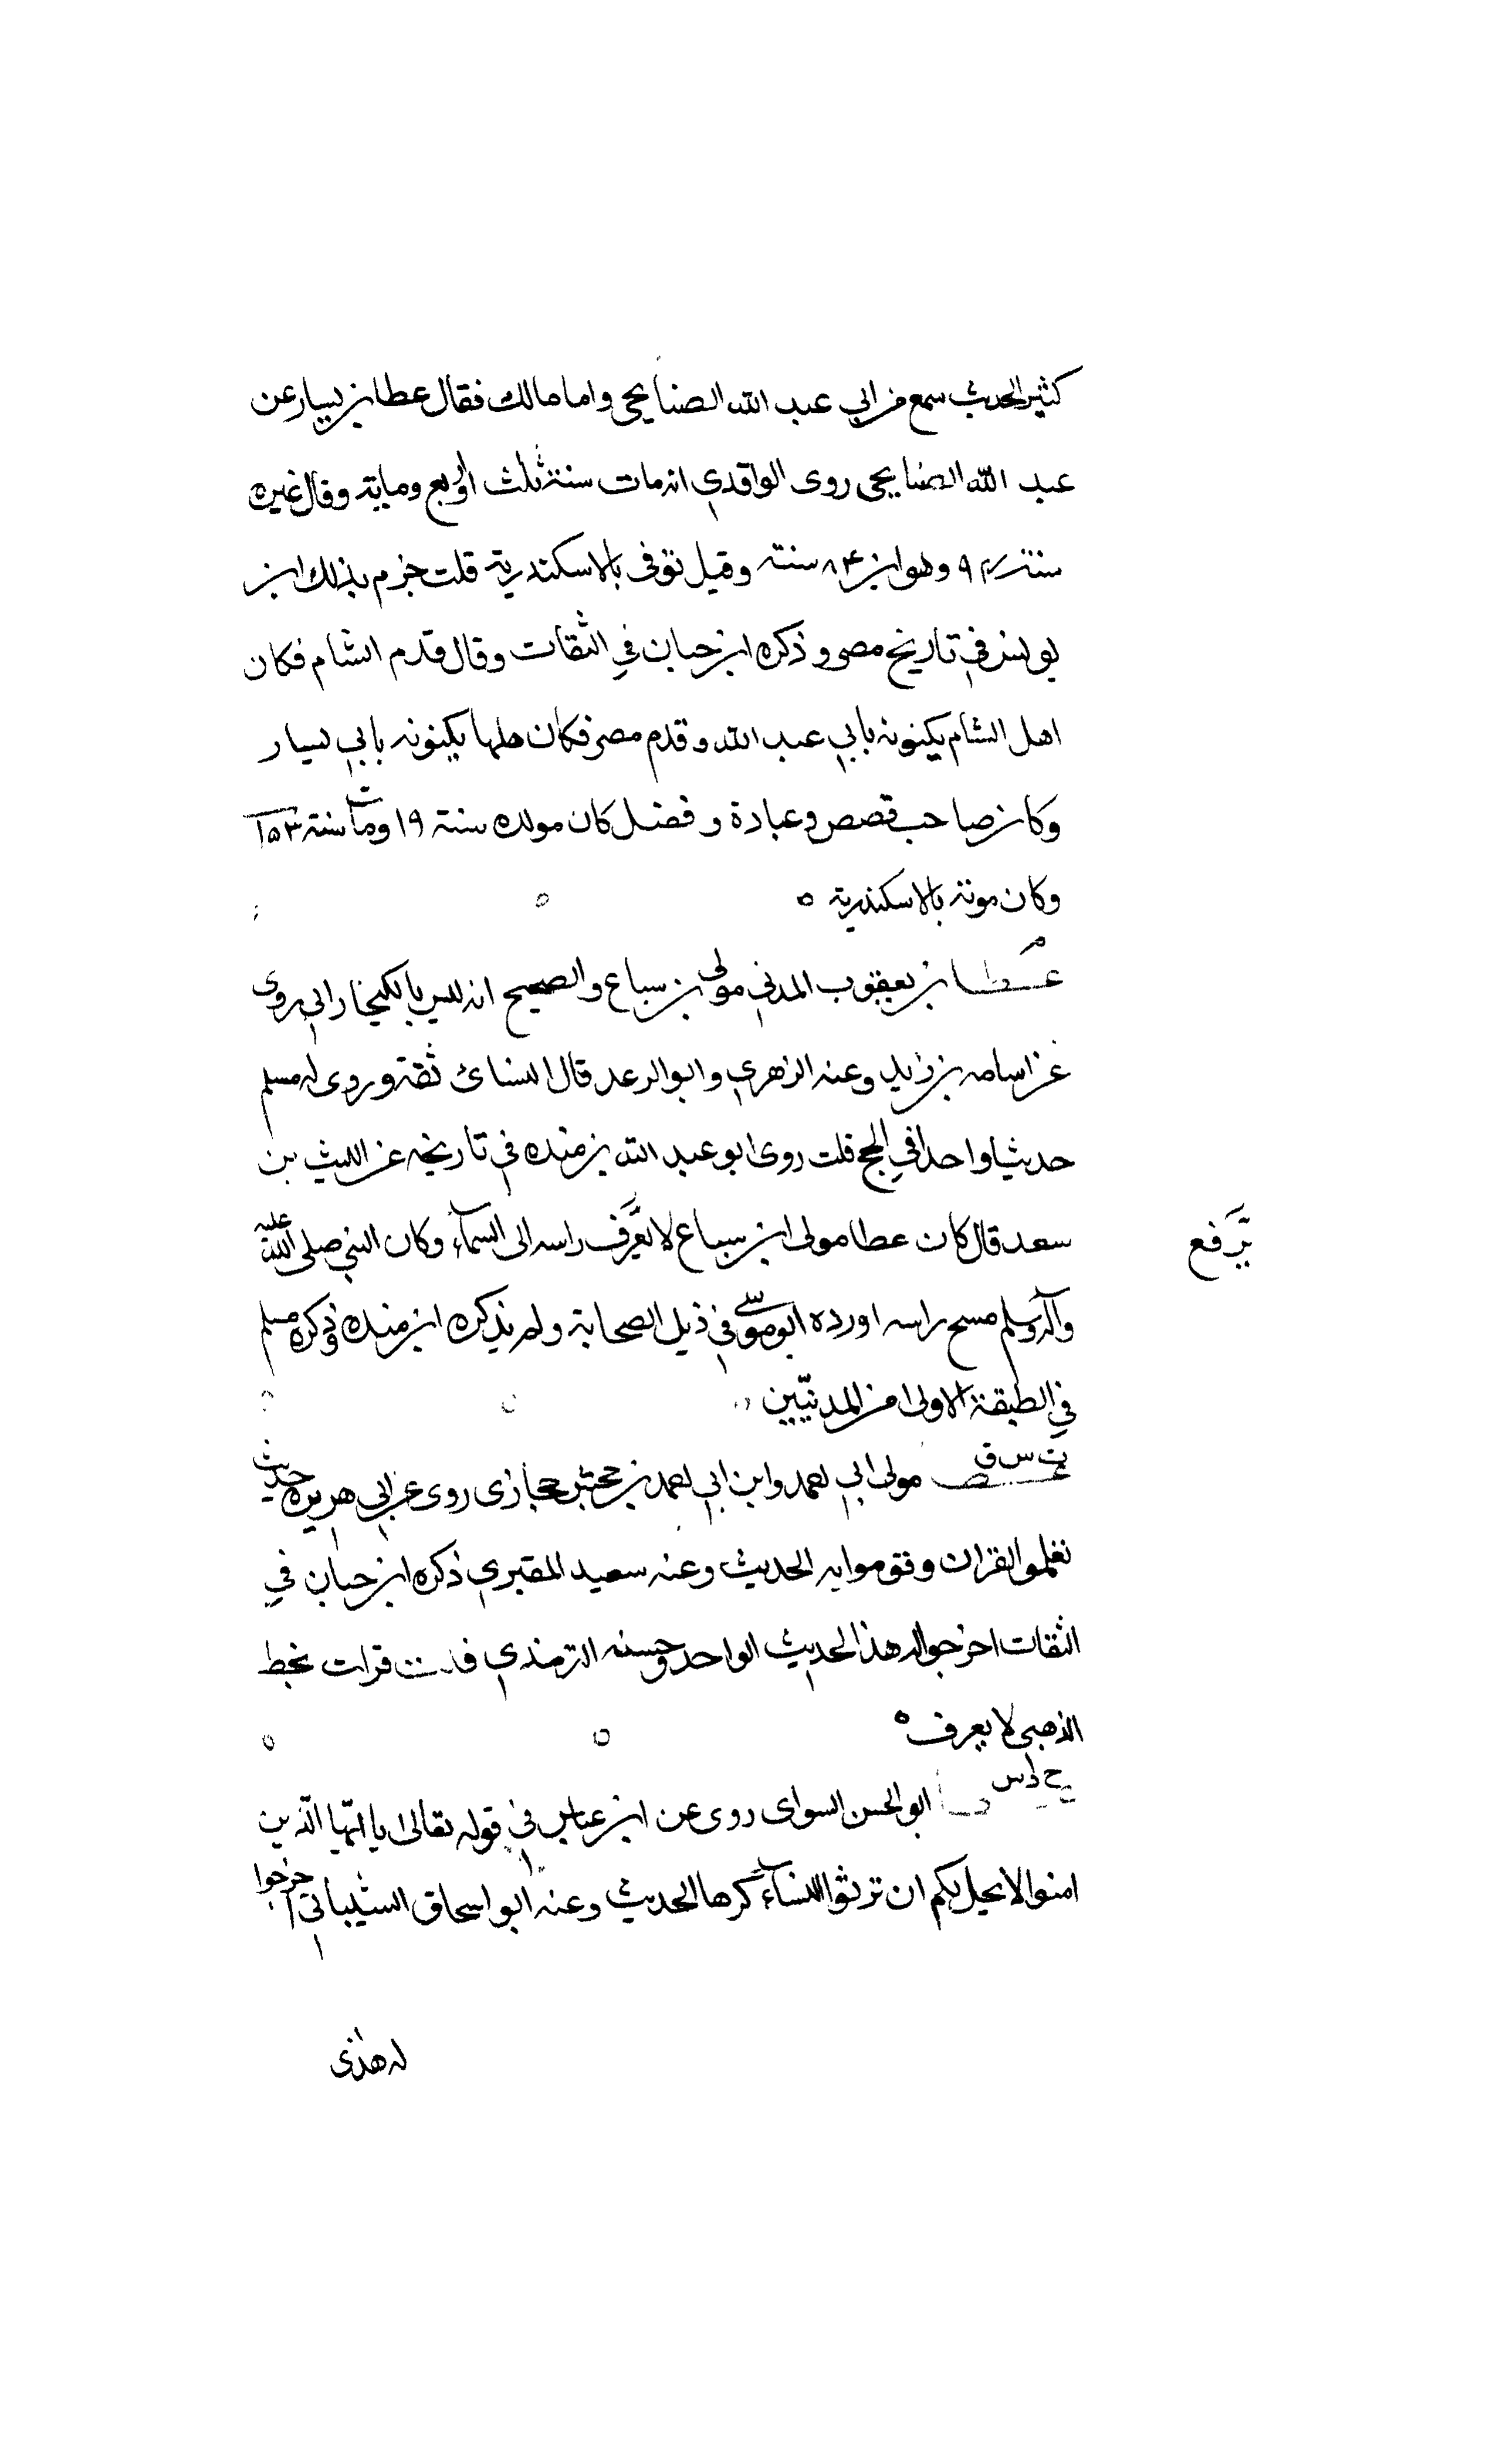 كثير الحديث سمع من ابي عبد الله الصنابحي واما مالك فقال عطا بن يسار عن
عبد الله الصنابحي روى الواقدي انه مات سنة ثلث او اربع وماية وقال غيره
سنة ٩٤ وهو ابن ٨٤ سنة وقيل توفى بالاسكندرية قلت جزم بذلك ابن
يونس في تاريخ مصر وذكره ابن حبان في الثقات وقال قدم الشام فكان
اهل الشام يكنونه بابي عبد الله وقدم مصر فكان اهلها يكنونه بابي يسار
وكان صاحب قصص وعبادة وفضل كان مولده سنة ١٩ ومات سنة ١٥٣
وكان موته بالاسكندرية
م
عطا بن يعقوب المدني مولى بن سباع والصحيح انه ليس بالكيخاراني روى
عن اسامه بن زيد وعنه الزهري وابو الرعد قال النسائ ثقة وروى له مسلم
حديثا واحدا في الحج قلت روى ابو عبد الله بن منده في تاريخه عن الليث بن
سعد قال كان عطا مولى ابن سباع لا يعرف راسه الى السماء وكان النبي صلى الله عليه
يرفع
وآله وسلم مسح راسه اورده ابو موسى في ذيل الصحابة ولم يذكره ابن منده وذكره مسلم
في الطبقة الاولى من المدنيين
ت س ق
عطا مولى ابي احمد وابن ابي احمد بن جحش حجازى روى عن ابي هريره حديث
تعلموا القران وقوموا به الحديث وعنه سعيد المقبري ذكره ابن حبان في
الثقات اخرجوا له هذا الحديث الواحد وحسنه الترمذي قلت قرات بخط
الذهبى لا يعرف
خ د س
عطا ابو الحسن السواى روى عن ابن عباس في قوله تعالى يا ايها الذين
امنوا لا يحل لكم ان ترثوا النساء كرها الحديث وعنه ابو اسحاق الشيباني اخرجوا
له هذى